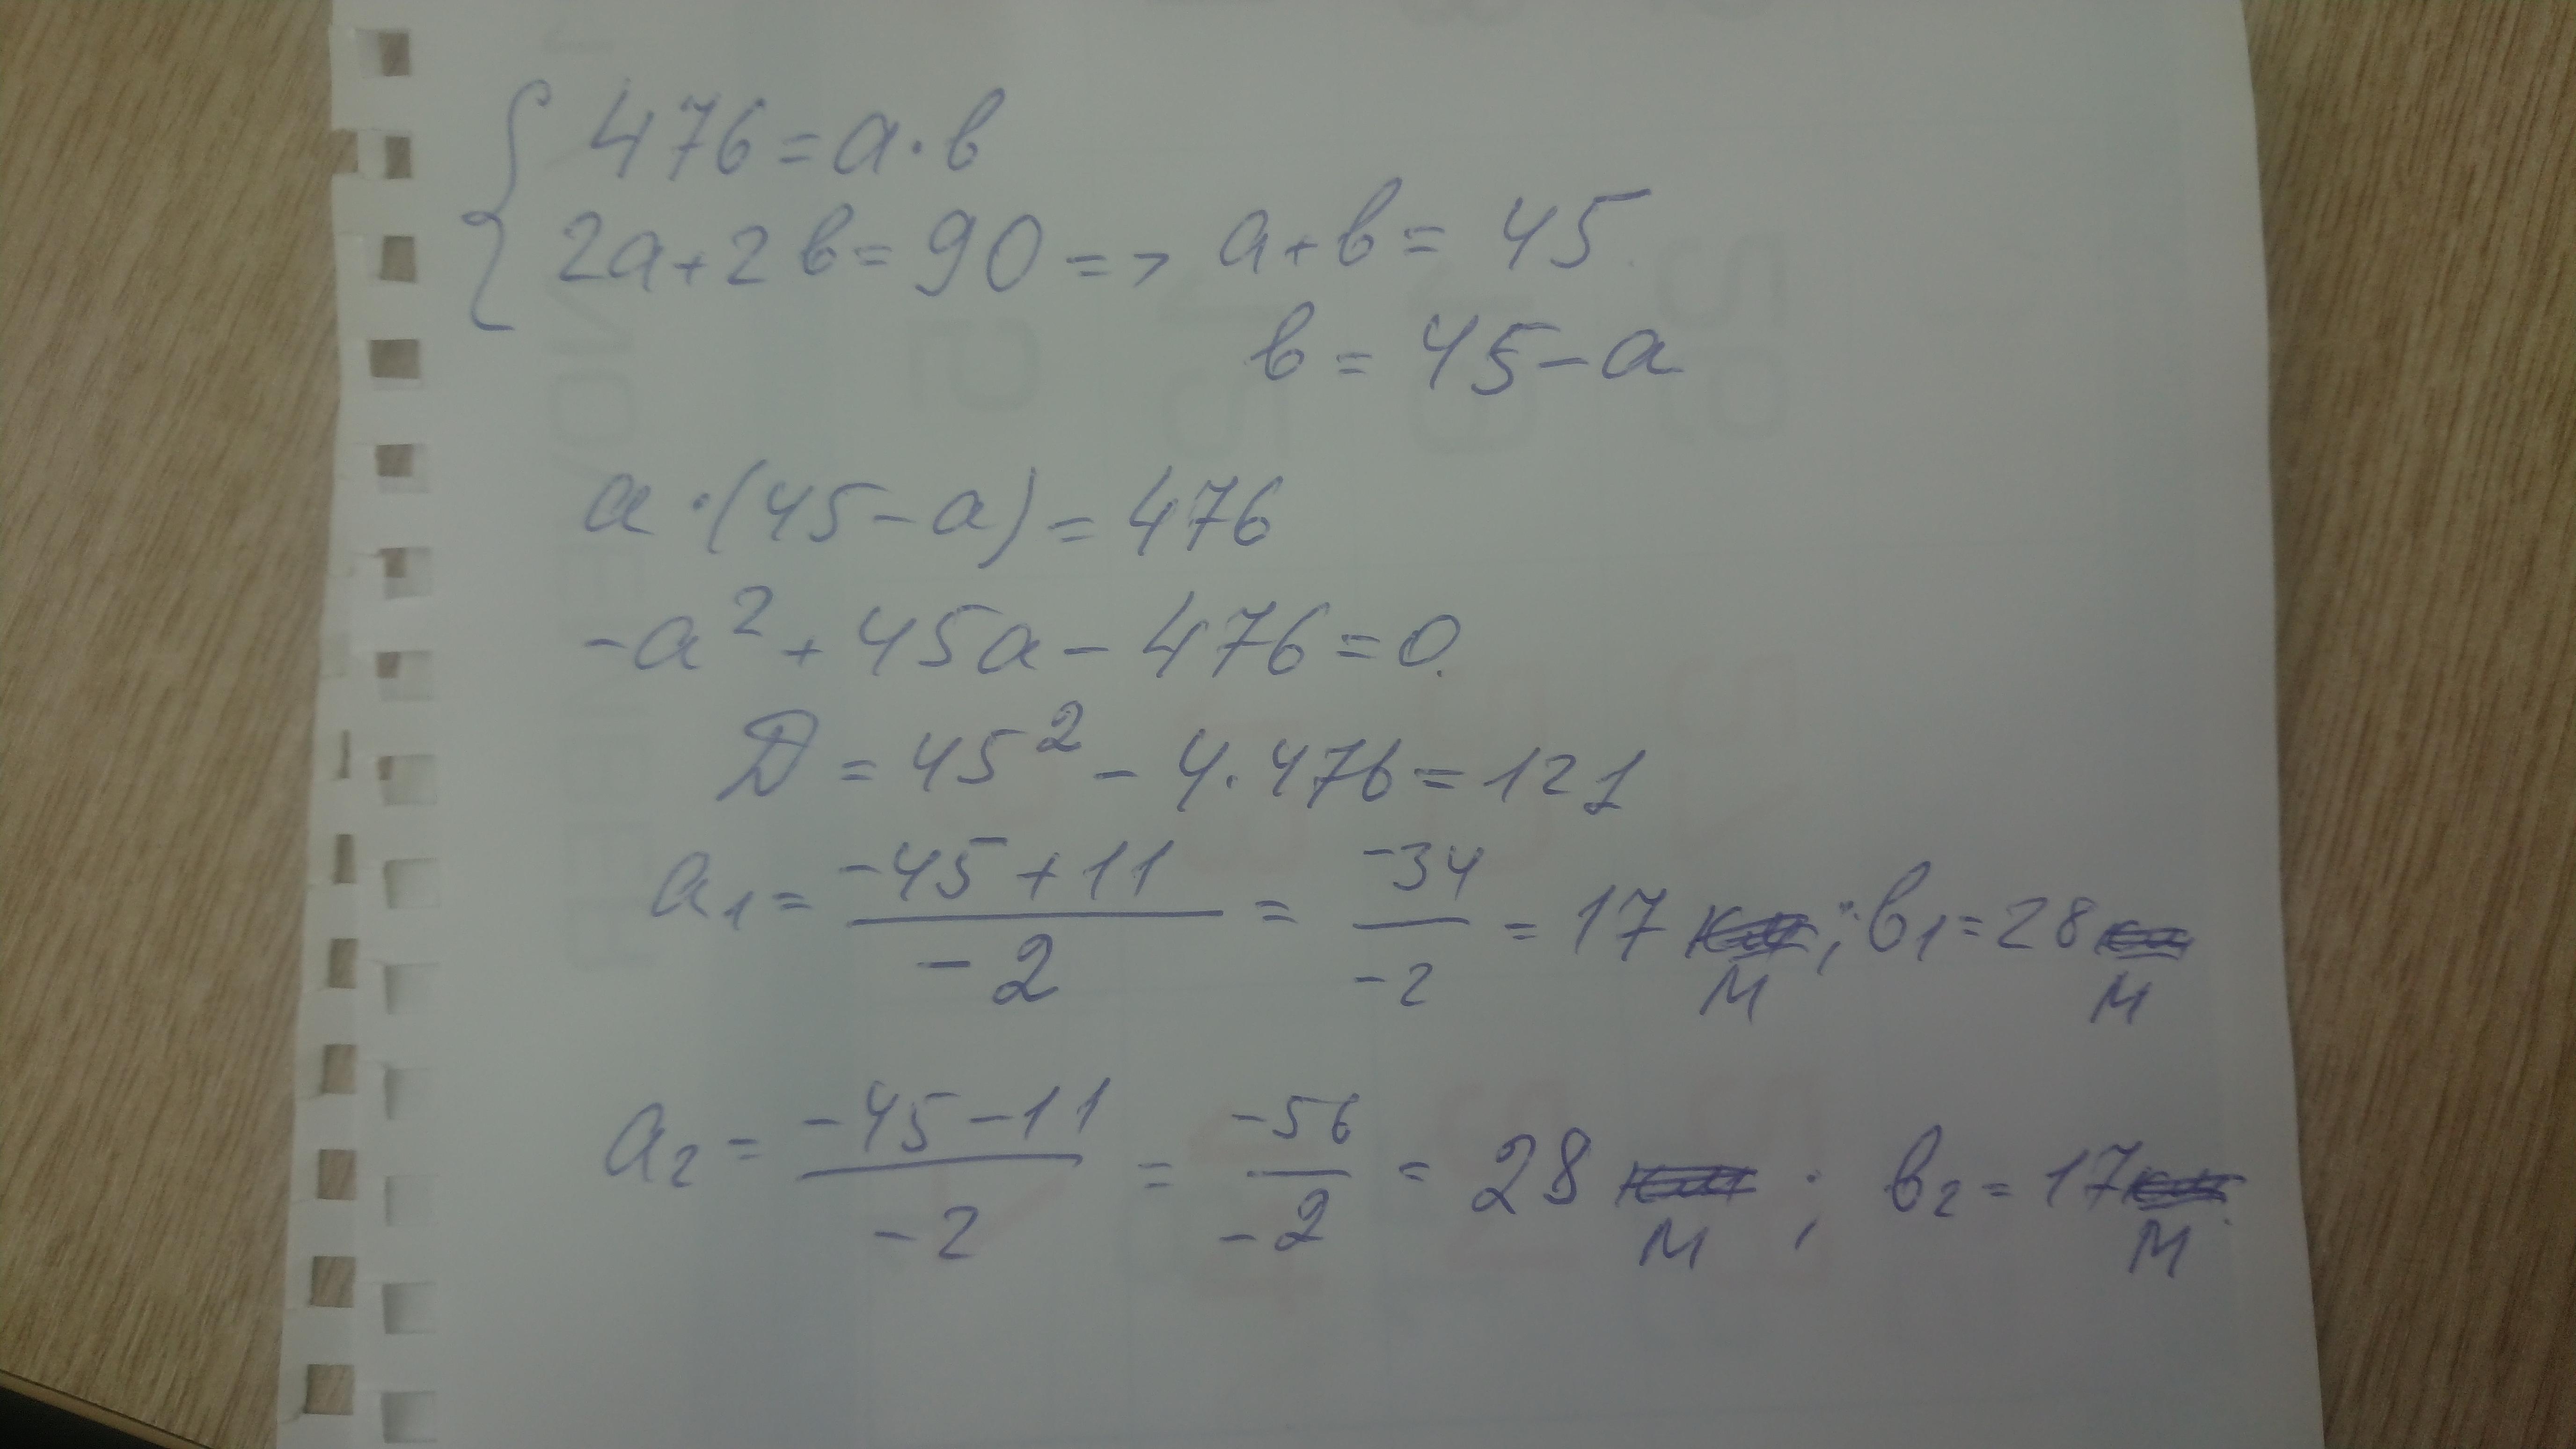 { 476 = a · b
2a + 2b = 90 => a + b = 45
b = 45 - a
a · (45 - a) = 476
-a² + 45a - 476 = 0.
D = 45² - 4 · 476 = 121
a₁ = (-45 + 11) / (-2) = (-34) / (-2) = 17 м ; b₁ = 28 м
a₂ = (-45 - 11) / (-2) = (-56) / (-2) = 28 м ; b₂ = 17 м